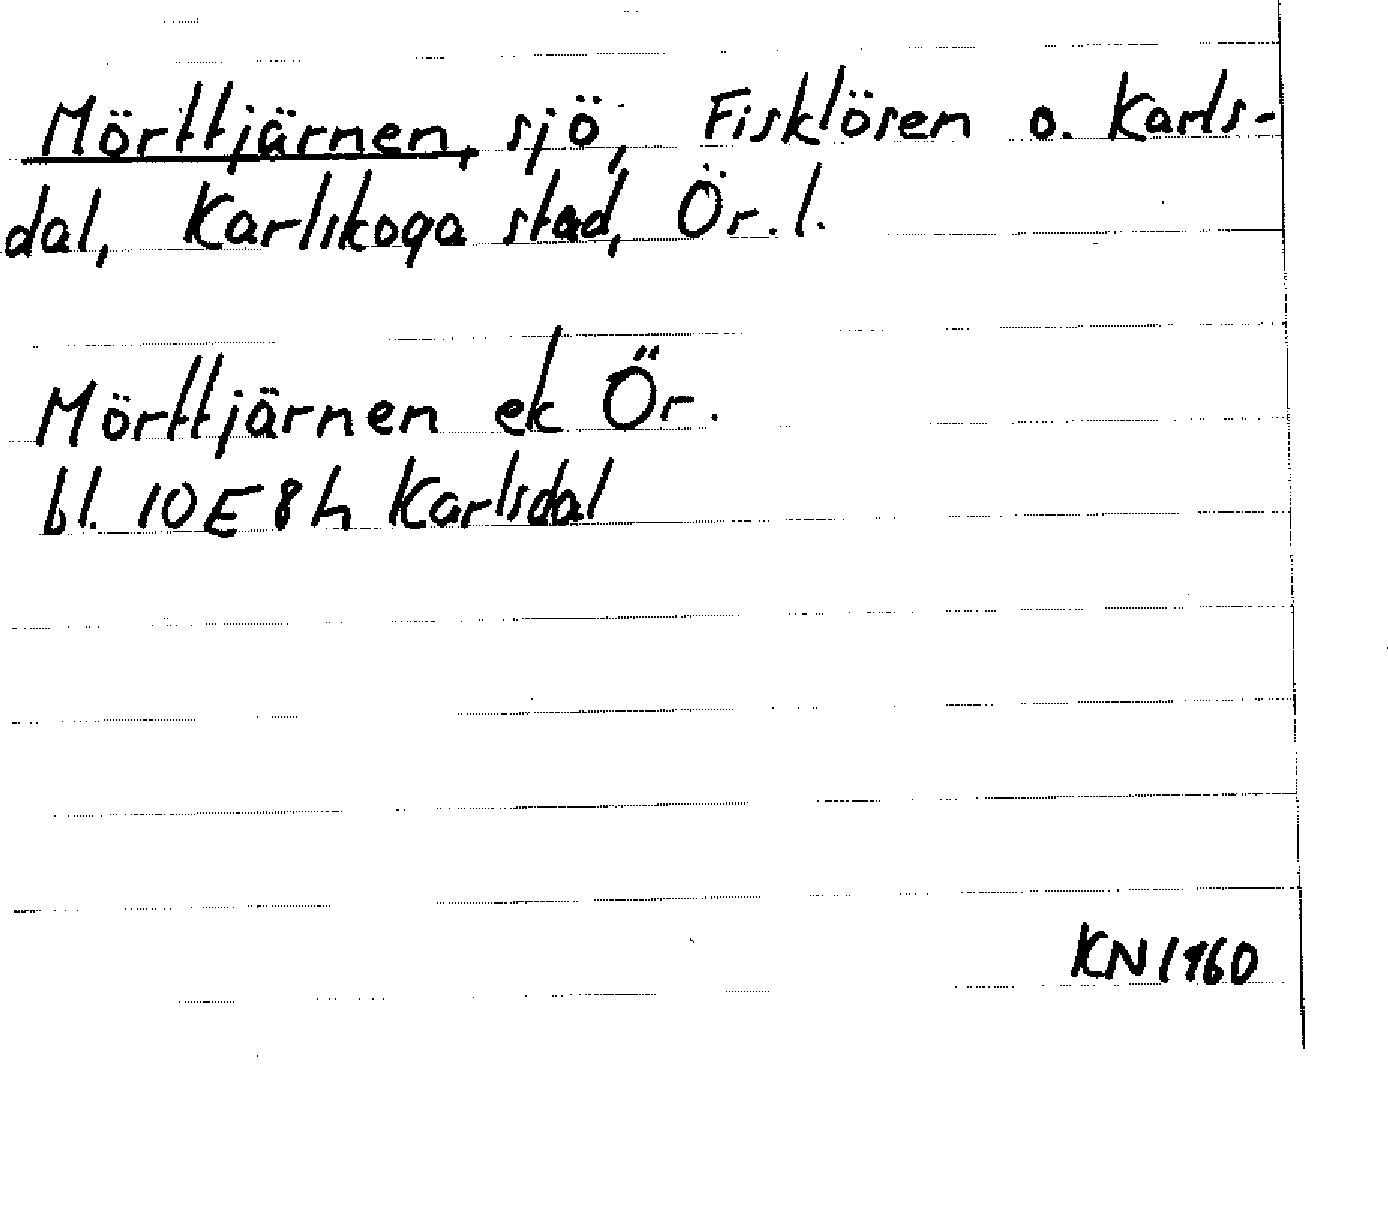 Mörttjärnen, sjö, Fisklösen o. Karls-
dal, Karlskoga stad, Ör. l.
Mörttjärnen ek Ör.
bl. 10E8h Karlsdal
KN1960